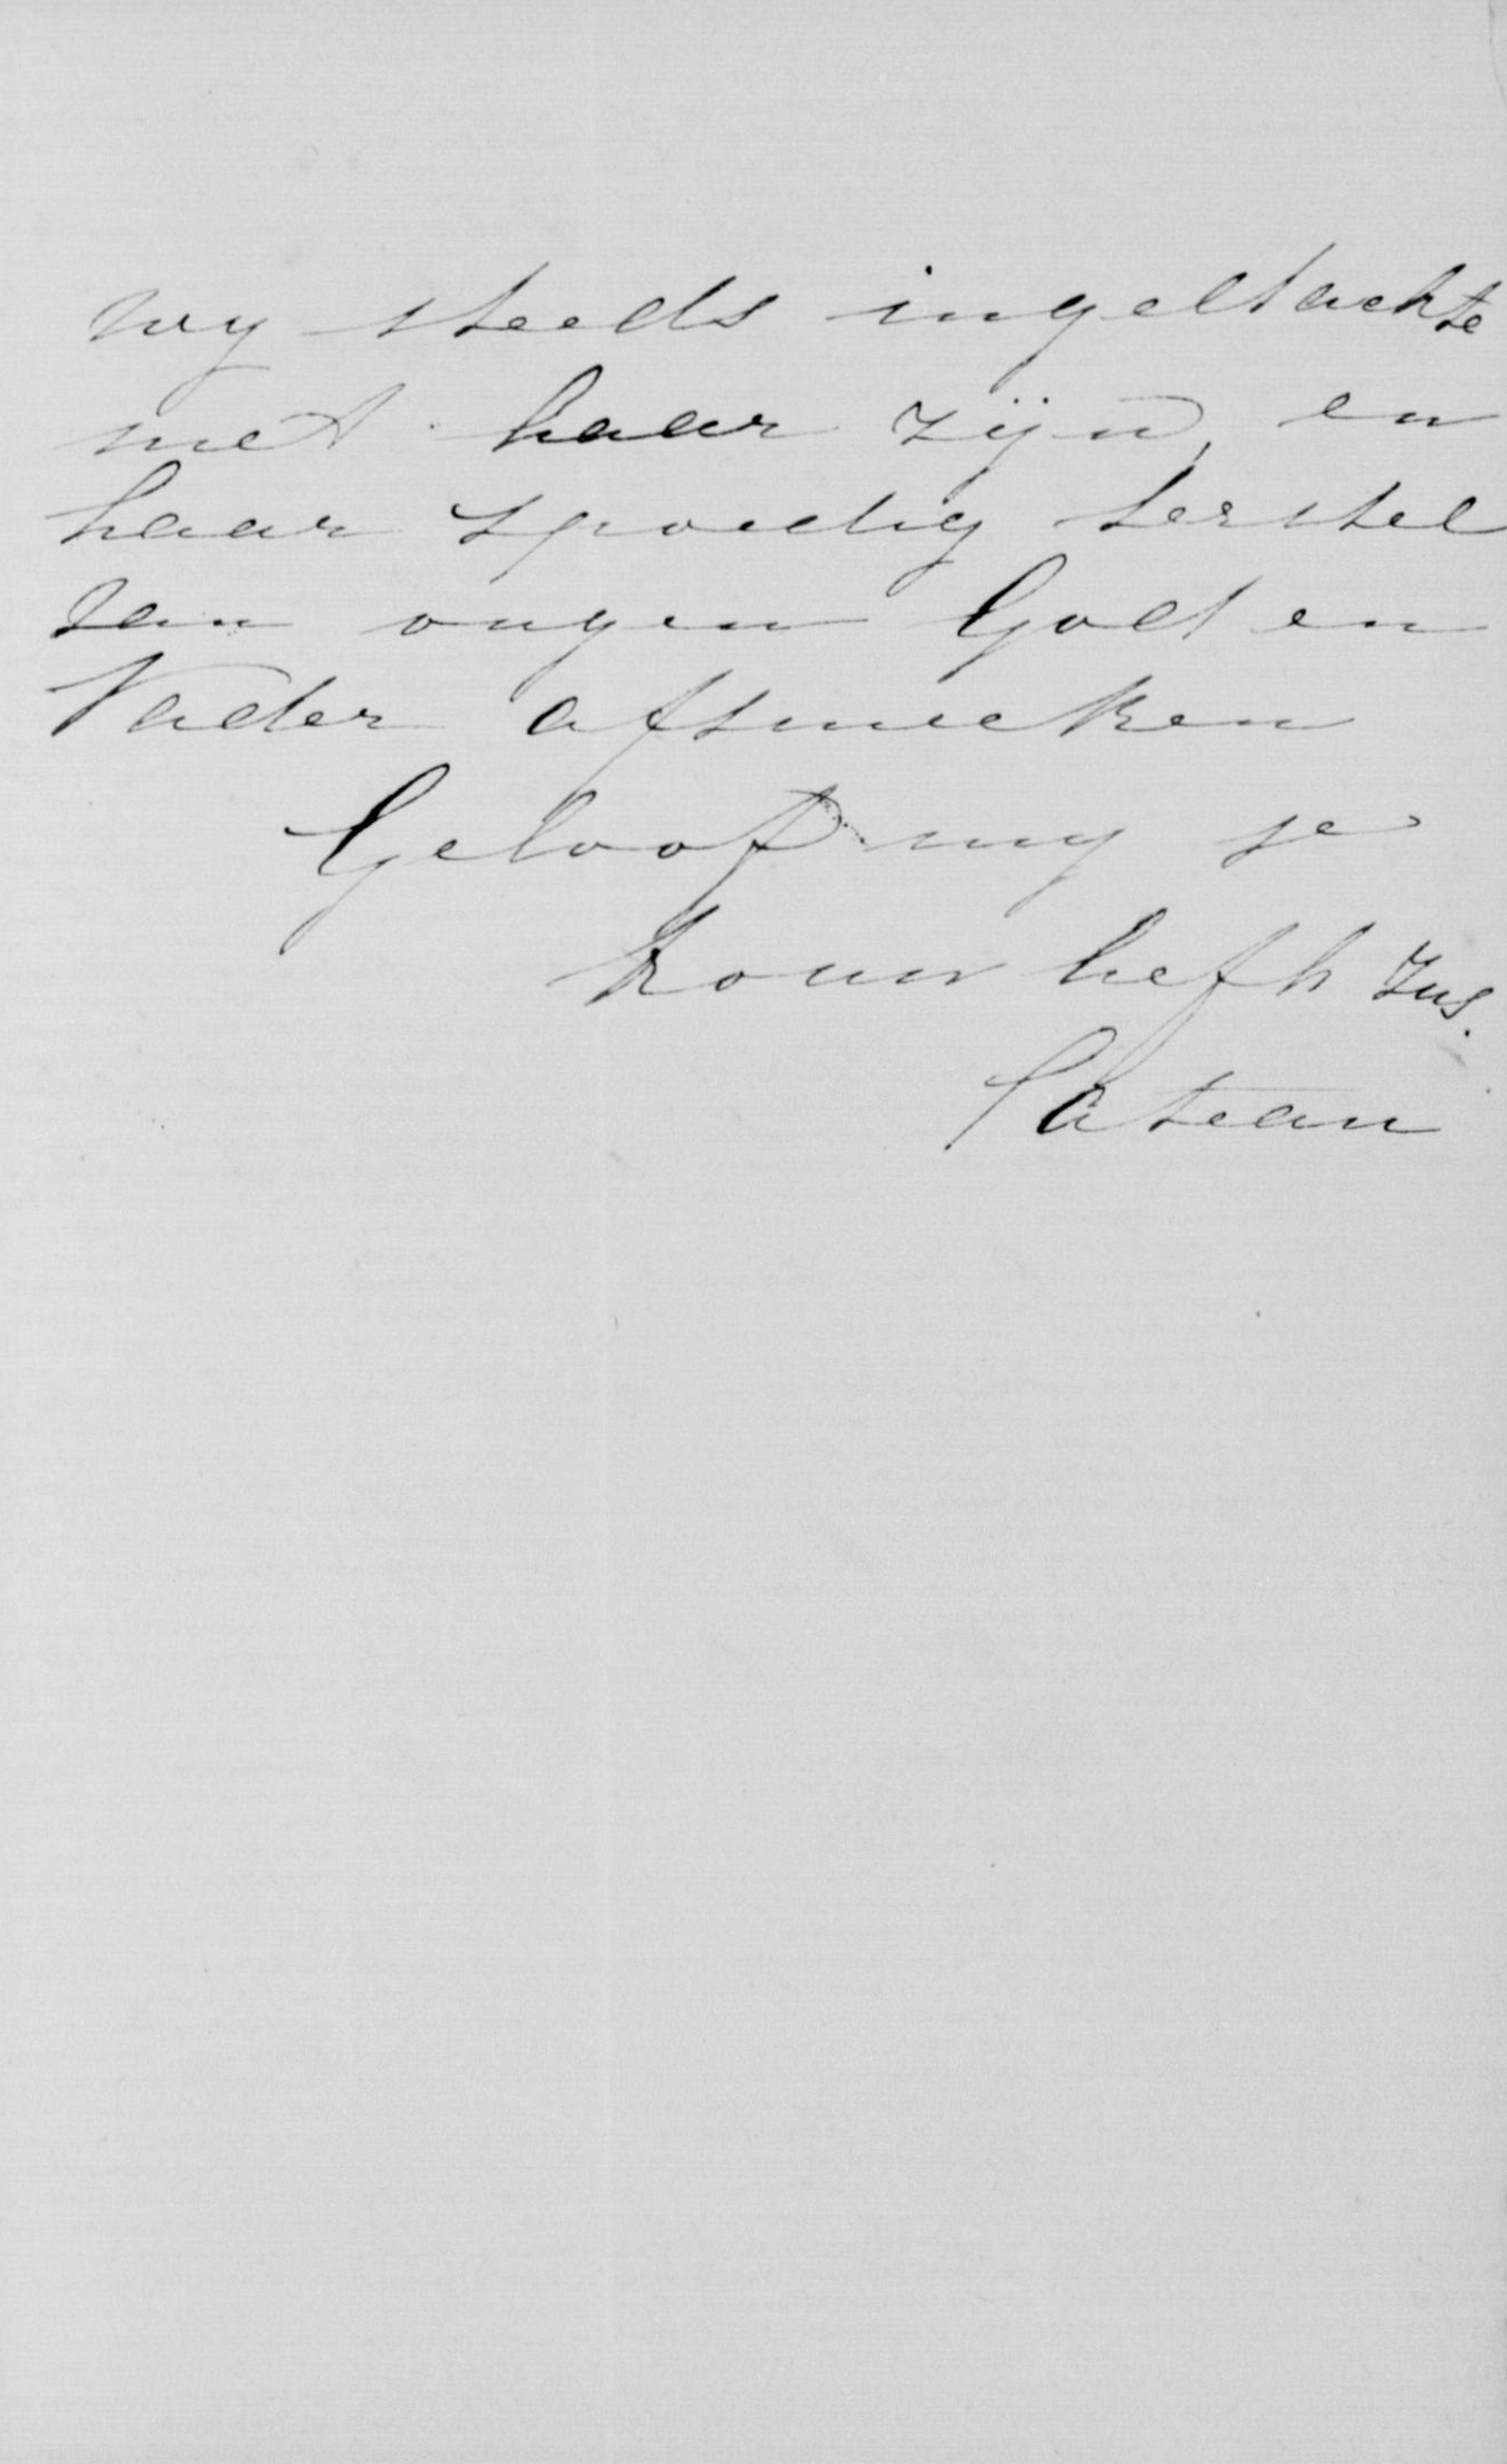 wy steeds ingedachte
met haar zijn, en
haar spoedig herstel
van onzen God en
Vader afsmeeken
Geloof my je
trouw liefh zus.
Cateau